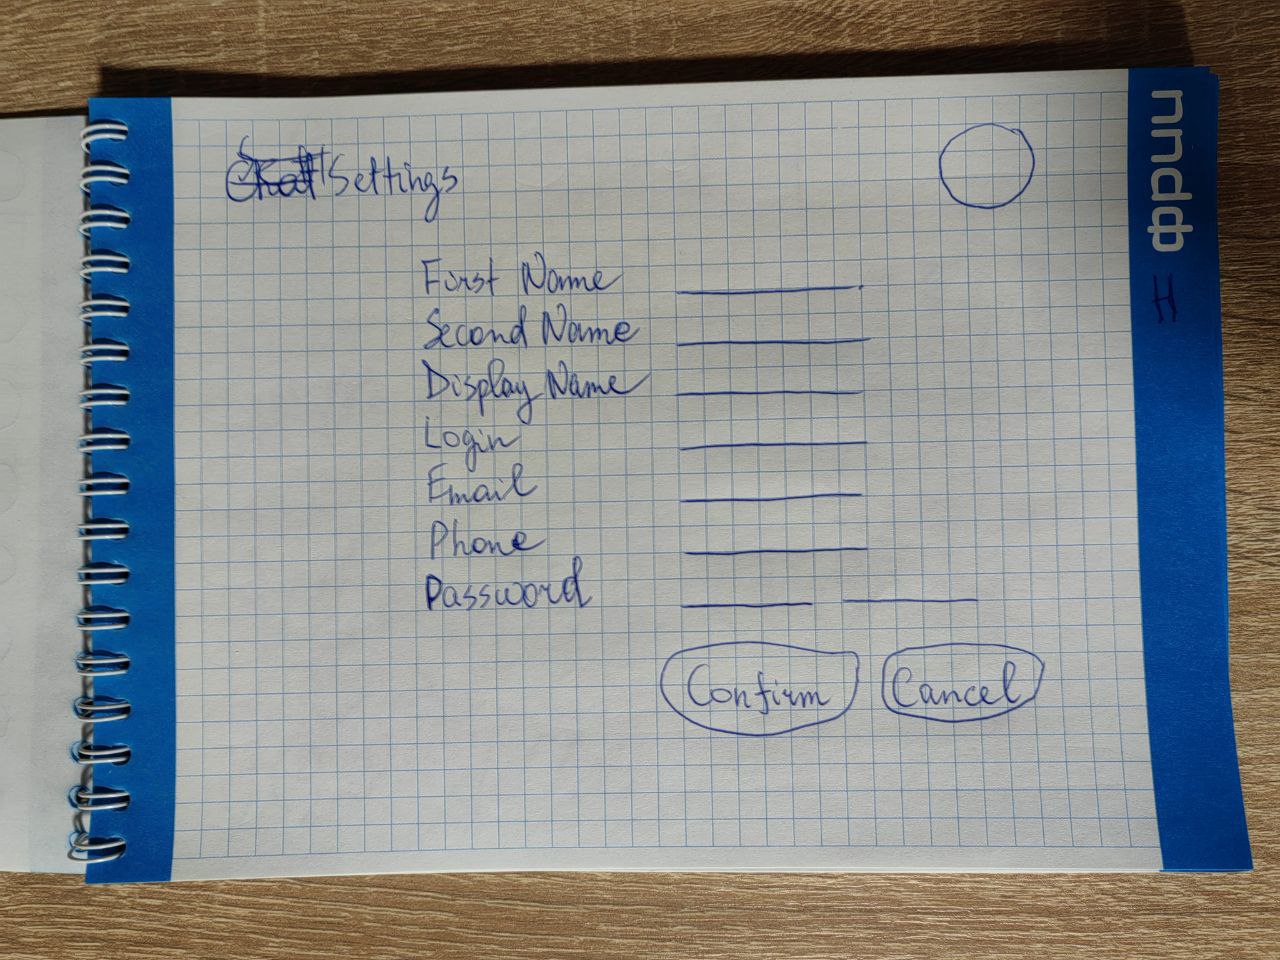 Settings
First Name
Second Name
Display Name
Login
Email
Phone
Password
Confirm
Cancel